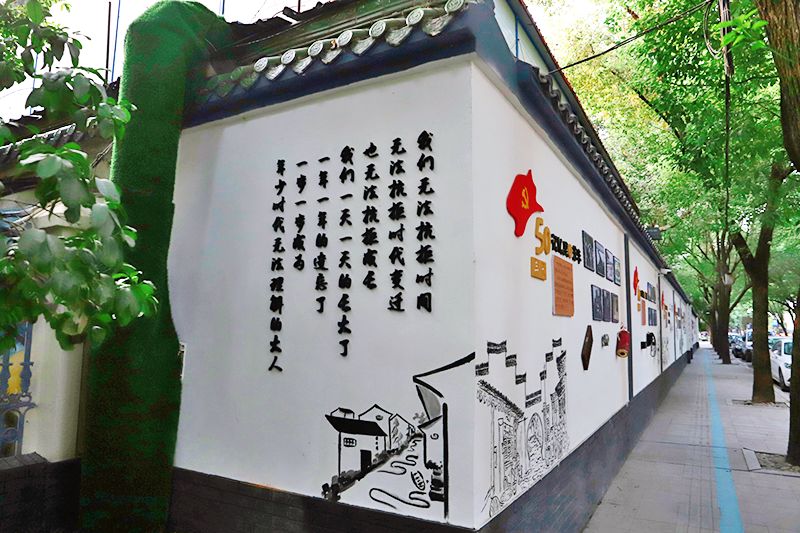 我们无法抗拒时间
无法抗拒时代变迁
也无法抗拒成长
我们一天一天的长大了
一年一年的过去了
一步一步成为
年少时代无法理解的大人
50